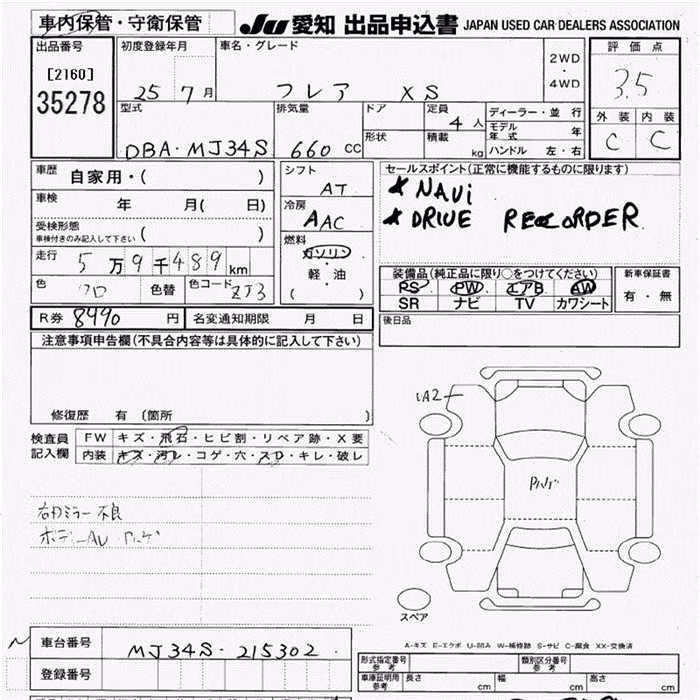 車内保管・守衛保管 JU 愛知 出品申込書 JAPAN USED CAR DEALERS ASSOCIATION
出品番号 初度登録年月 車名・グレード 2WD・4WD 評価点
[2160] 25 7月 フレア XS 3.5
35278
型式 排気量 ドア 定員 4人 ディーラー・並行 外装 内装
形状 積載 kg モデル年式 年 C C
DBA・MJ34S 660 CC ハンドル 左・右
車歴 自家用・( ) シフト AT セールスポイント(正常に機能するものに限ります)
車検 年 月( 日) 冷房 AAC ★NAVi
受検形態 ★DRIVE RECORDER
車検付きのみ記入して下さい ( )
走行 5万9千489km 燃料 ガソリン・軽・油 ( )
色 色替 色コード ZJ3
装備品(純正品に限り○をつけてください) 新車保証書
PS PW エアB AW 有・無
SR ナビ TV カワシート
R券 8490円 名変通知期限 月 日 後日品
注意事項申告欄(不具合内容等は具体的に記入して下さい)
修復歴 有 (箇所 )
検査員記入欄 FW キズ・飛石・ヒビ割・リペア跡・X要
内装 キズ・汚レ・コゲ・穴・スレ・キレ・破レ
UA2
右ドミラー不良
スペア
A-キズ E-エクボ U-凹み W-補修跡 S-サビ C-腐食 XX-交換済
車台番号 MJ34S-215302
登録番号
形式指定番号 参考 類別区分番号 参考
車庫証明用 参考 長さ cm 幅 cm 高さ cm